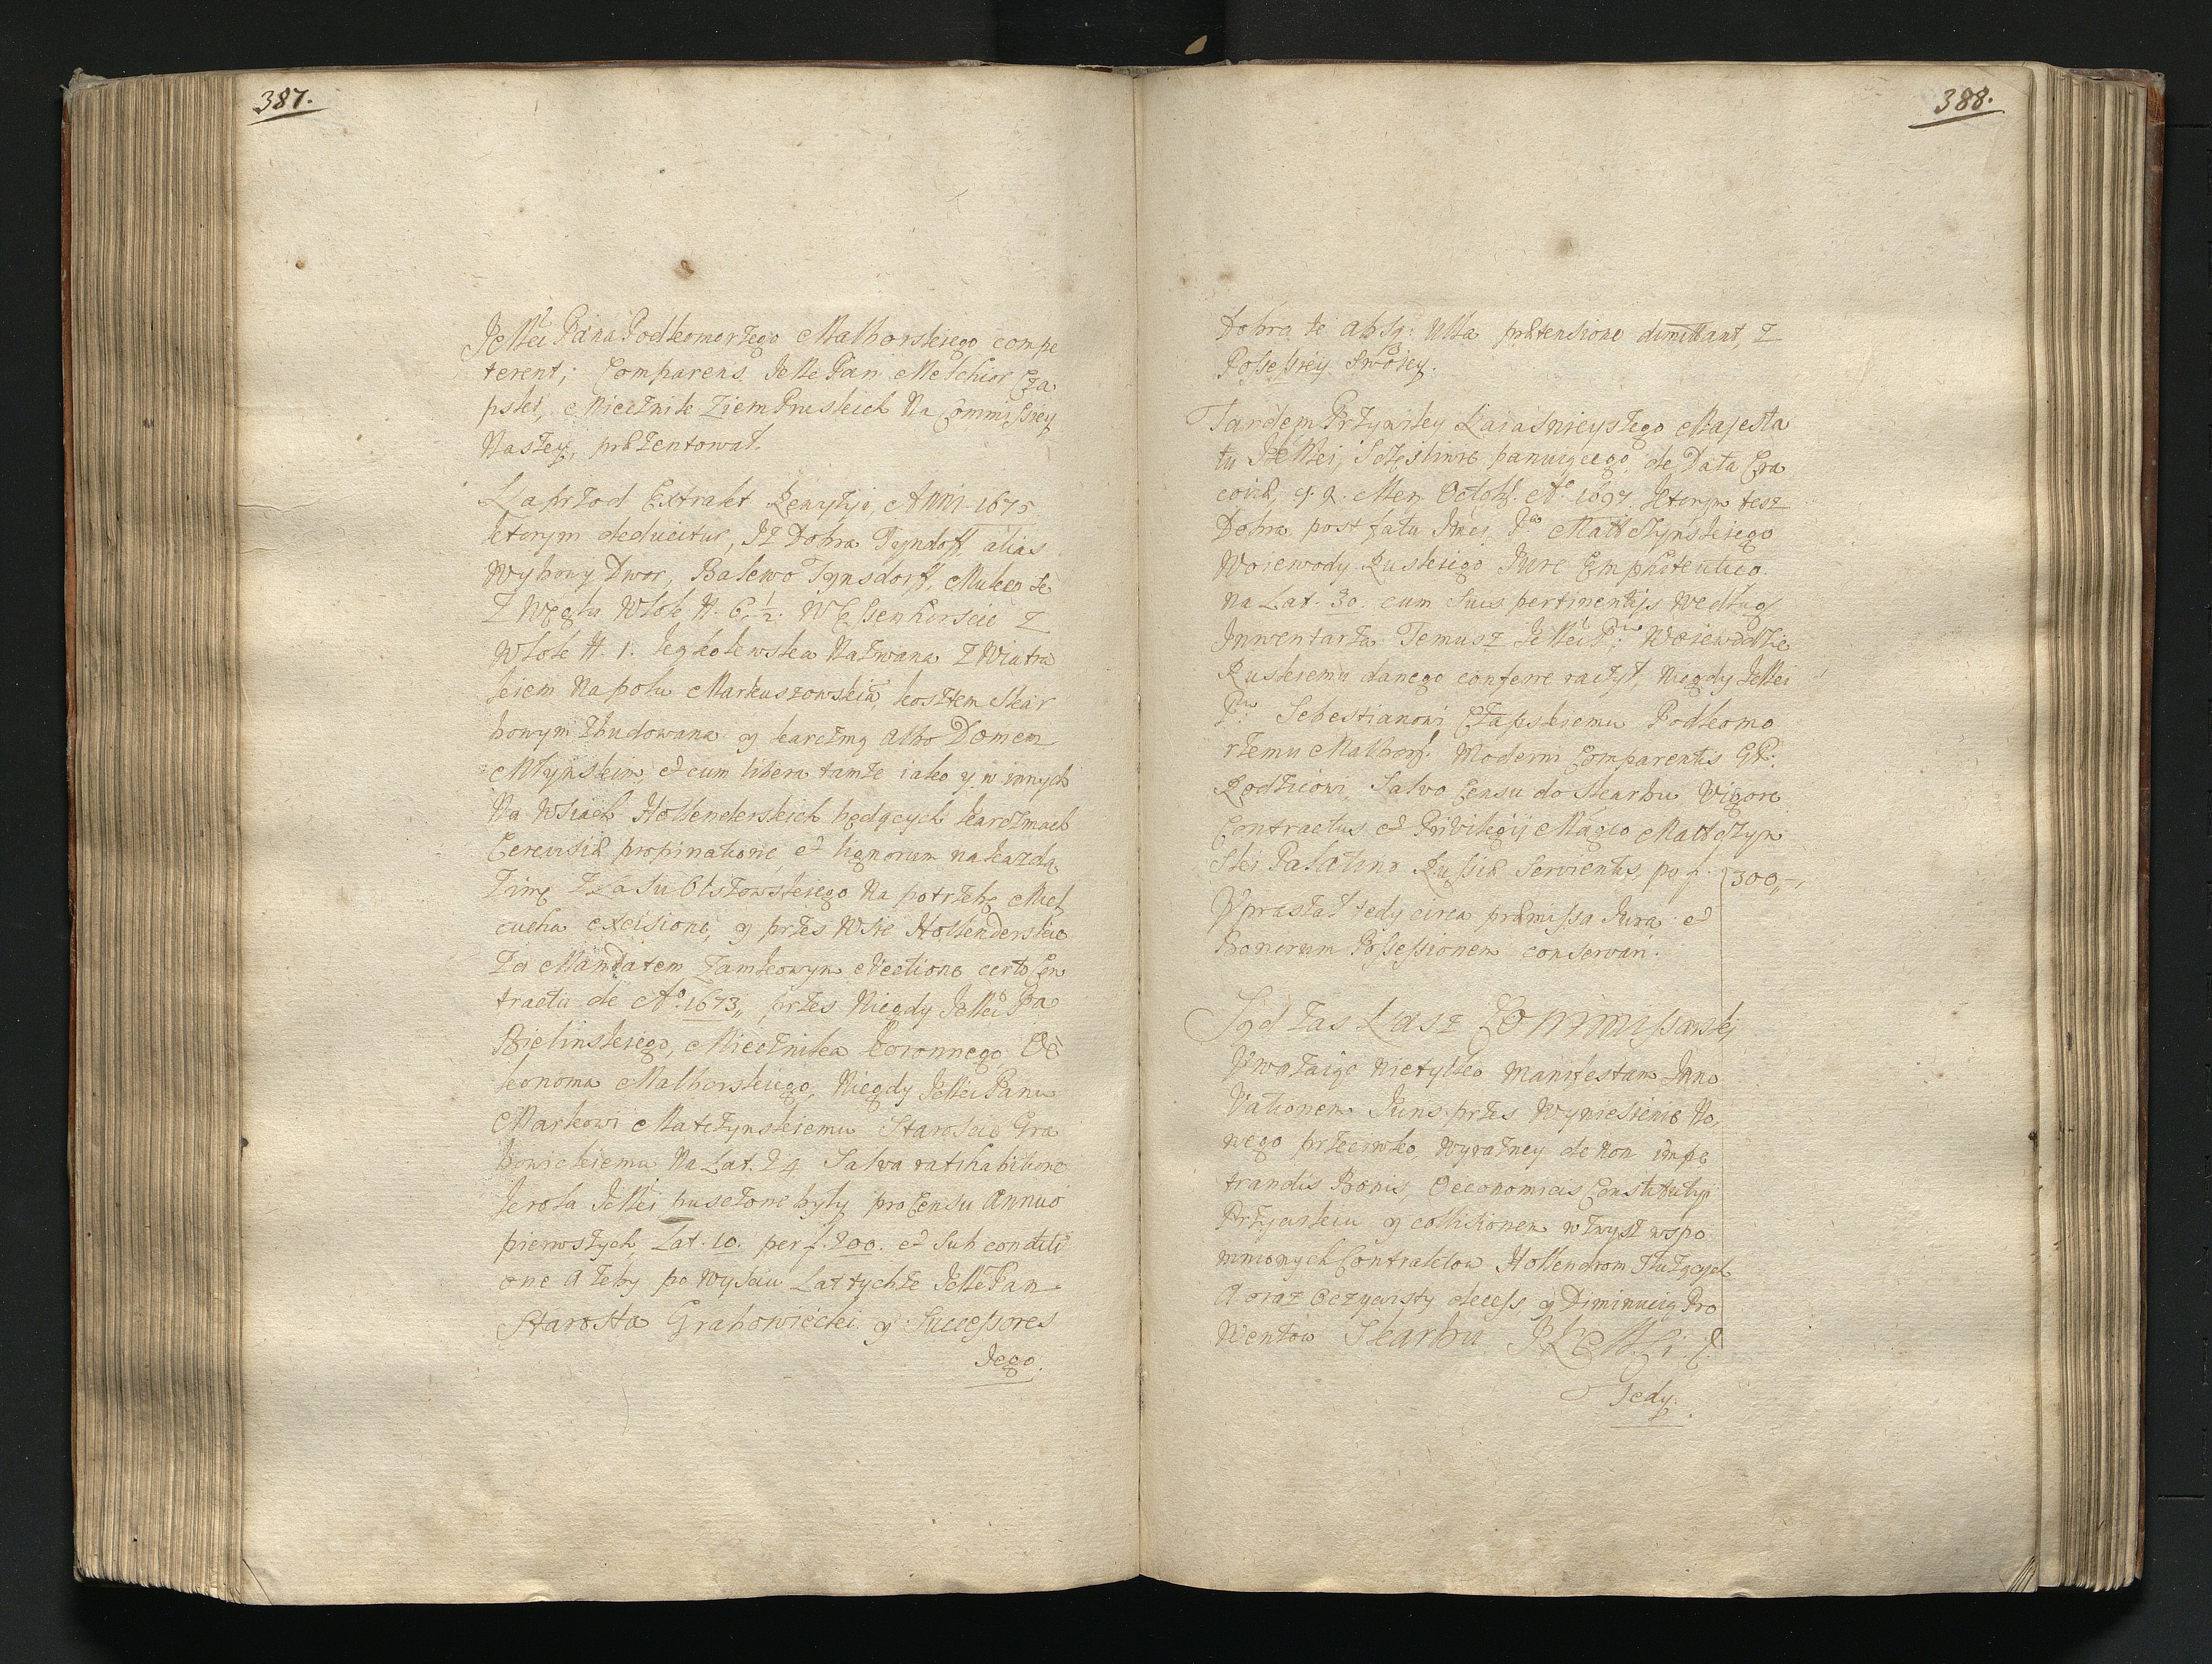 387.
JeMci Pana Podkomorzego Malborskiego compe
terent; Comparens JeMc Pan Melchior Cza
pski, Miecznik Ziem Pruskich Na Commissiey
Naszey, præzentował.
Naprzod Extrakt Rewizyi, Anni 1675
ktorym deducitur, Iż Dobra Tyndorff alias
Wybony Dwor, Balewo Tynsdorff,
Z Węgla Włok N. 6. 1/2. W Essenhorscie Z
Włok N. 1. Nazwana Z Wiatra
kiem Na polu Markuszowskim, kosztem Skar
bowym Zbudowana y karczmą albo Domem
Młynskim, et cum libera tamże iako y w innych
Na Wsiach Hollenderskich będących karczmach
Cerevisiæ propinatione, et lignorum na kazdą
Zimę Z Lasu Na potrzebę Miel
cucha excisione, y przez Wsie Hollenderskie
Za Mandatem Zamkowym Vectione certo Con
tractu de Ao. 1673,, przez Niegdy JeMci Pa
Bielinskiego, Miecznika Koronnego Oe
konoma Malborskiego, Niegdy JeMci Panu
Markowi Matczynskiemu Staroscie Gra
bowieckiemu Na Lat. 24 Salva ratihabitione
krola JeMci puszczone były pro Censu Annuo
pierwszych Lat. 10. per f. 200. et sub conditi
one Ażeby po wysciu Lat tychże JeMc Pan
Starosta Grabowiecki y Successores
Jego.
388.
Dobra te absq: Ulla prætensione dimittant, Z
Possessiey Swoiey.
Tandem Przywiley Naiasnieyszego Majesta
tu JKMci, Szczęśliwie panuiącego, de Data Cra
coviæ, d. 2. Men. Octobr. Ao. 1697. ktorym tesz
Dobra post fata Jmci Pa Matczynskiego
Woiewody Ruskiego Jure Emphiteutico
na Lat. 30. cum suis pertinentijs według
Inwentarza Temusz JeMci Pu. Woiewodzie
Ruskiemu danego conferre raczył, Niegdy JeMci
Pu. Sebestianowi Czapskiemu Podkomo
rzemu Malbors. Moderni Comparentis GP.
Rodzicowi, Salvo Censu do Skarbu Vigore
Contractus et Privilegij Magco Matczyn
ski Palatino Russiæ Servientis, po f. 300,,—
Upraszał tedy circa præmissa Jura et
Bonorum Possessionem conservari.
Sąd zas Nasz Commissarski
Uwazaiąc nietylko manifestam Inno
vationem Juris przez Wyniesienie No
wego przeciwko wyrazney de non impe
trandis Bonis Oeconomicis Constitutyi
Przywileiu y collisionem w zwysz wspo
mnionych Contraktow Hollendrom Służących
A oraz oczywisty decess y Diminucią Pro
wentow Skarbu JKMCi.
Tedy.